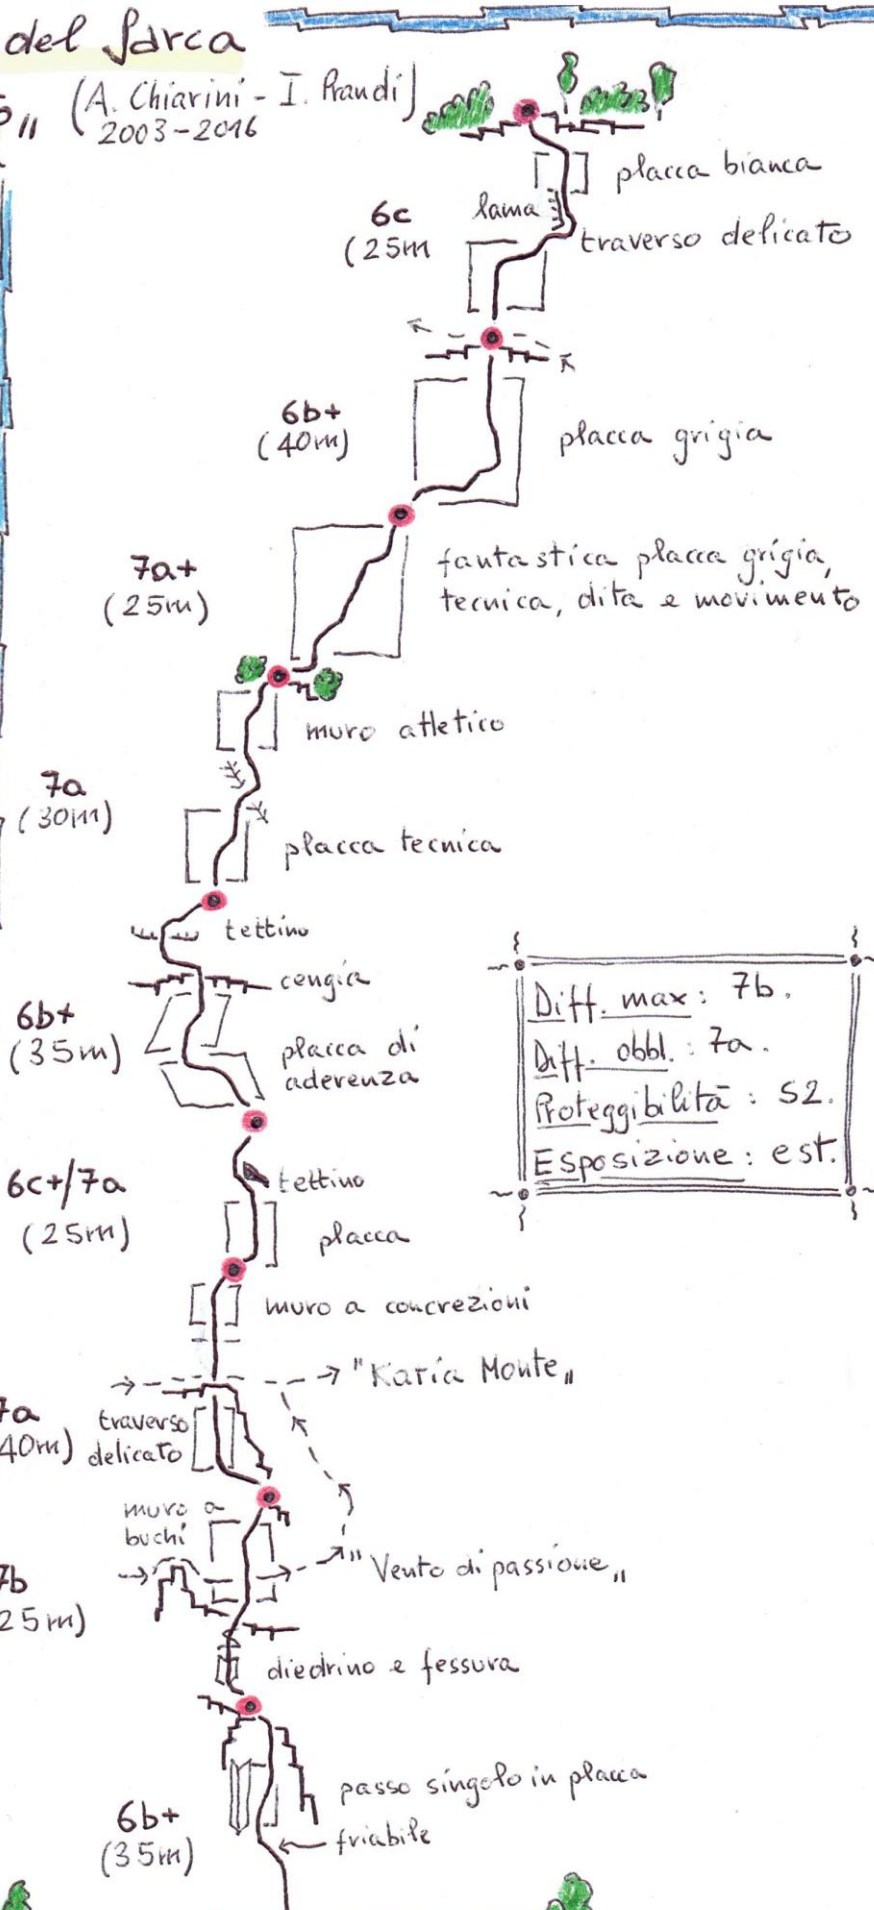 del Sarca
(A. Chiarini - I. Prandi)
2003-2016
placca bianca
6c
(25m
lama
traverso delicato
6b+
(40m)
placca grigia
7a+
(25m)
fantastica placca grigia,
tecnica, dita e movimento
muro atletico
7a
(30m)
placca tecnica
tettino
cengia
6b+
(35m)
placca di
aderenza
Diff. max: 7b.
Diff. obbl.: 7a.
Proteggibilità: S2.
Esposizione: est.
6c+/7a
(25m)
tettino
placca
muro a concrezioni
"Karia Monte"
7a
40m)
traverso
delicato
muro a
buchi
7b
25m)
"Vento di passione"
diedrino e fessura
passo singolo in placca
6b+
(35m)
friabile